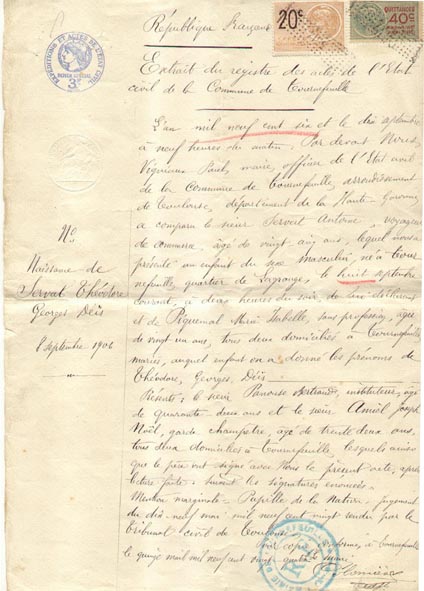 République Française
20c
QUITTANCES
40c
EXPÉDITIONS ET ACTES DE L'ÉTAT CIVIL
3F
Extrait du registre des actes de l'Etat
civil de la Commune de Tournefeuille
L'an mil neuf cent six et le dix septembre
à neuf heures du matin. Par devant Nous
maire, officier de l'Etat civil
de la Commune de Tournefeuille, arrondissement
de Toulouse, département de la Haute Garonne,
a comparu le sieur Servat Antoine, voyageur
de commerce, âgé de vingt cinq ans, lequel nous a
présenté un enfant du sexe masculin, né à Tour
nefeuille, quartier de Lagrange, le huit septembre
courant, à deux heures du soir, de lui déclarant
et de Piquemal Marie Isabelle, sans profession, âgée
de vingt un ans, tous deux domiciliés à Tournefeuille
mariés, auquel enfant on a donné les prénoms de
Théodore, Georges, Déïs
Présents: le sieur Panouse Bertrand, instituteur, âgé
de quarante deux ans et le sieur Amiel Joseph
Noël, garde champêtre, âgé de trente deux ans,
tous deux domiciliés à Tournefeuille, lesquels ainsi
que le père ont signé avec Nous le présent acte, après
lecture faite. Suivent les signatures énoncées.
Mention marginale: Pupille de la Nation, jugement
du dix-neuf mai mil neuf cent vingt rendu par le
tribunal civil de Toulouse
Pour copie conforme, à Tournefeuille
le quinze mai mil neuf cent vingt quatre
No
Naissance de
Servat Théodore
Georges Déïs
8 septembre 1906